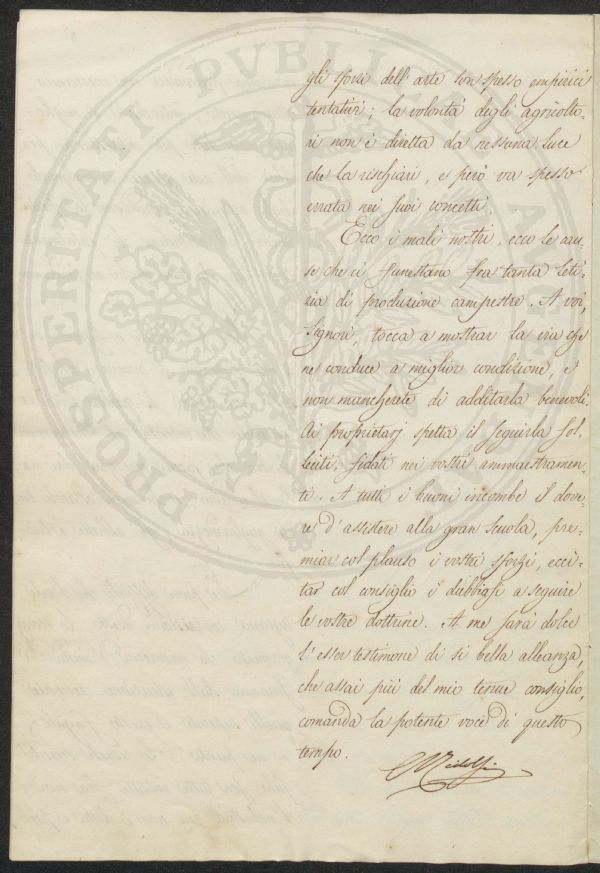 gli sforzi dell'arte son spesso empirici
tentativi; la volontà degli agricolto-
ri non è diretta da nessuna luce
che la rischiari, e però va spesso
errata nei suoi concetti.
Ecco i mali nostri, ecco le cau-
se che ci funestano fra tanta leti-
zia di produzione campestre. A voi,
Signori, tocca a mostrar la via che
ne conduce a miglior condizione, e
non mancherete di additarla benevoli.
Ai proprietarj spetta il seguirla sol-
leciti, fidati nei vostri ammaestramen-
ti. A tutti i buoni incombe il dove-
re d'assistere alla gran Scuola, pre-
miar col plauso i vostri sforzi, ecci-
tar col consiglio i dubbiosi a seguire
le vostre dottrine. A me sarà dolce
l'esser testimone di sì bella alleanza,
che assai più del mio tenue consiglio,
comanda la potente voce di questo
tempo.
C Ridolfi
PROSPERITATI PVBLICAE